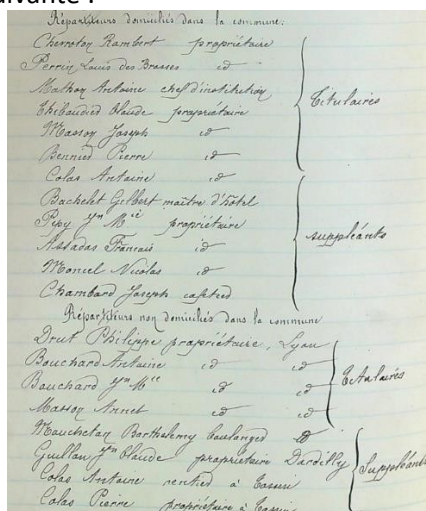 suivante :
Répartiteurs domiciliés dans la commune :
Cherroton Rambert propriétaire
Perrin Louis des Brosses id
Mathon Antoine chef d'institution
Thibaudier Claude propriétaire
Titulaires
Masson Joseph id
Pierre id
Colas Antoine id
Bachelet Gilbert maître d'hôtel
Pepy Jn Mie propriétaire
suppléants
Français id
Moncel Nicolas id
Chambard Joseph cafetier
Répartiteurs non domiciliés dans la commune
Drut Philippe propriétaire, Lyon
Bouchard Antoine id id
Titulaires
Bouchard Jn Mie id id
Masson Annet id id
Barthélemy boulanger id
Guillon Jn Claude propriétaire Dardilly
Suppléants
Colas Antoine rentier à
Colas Pierre propriétaire à